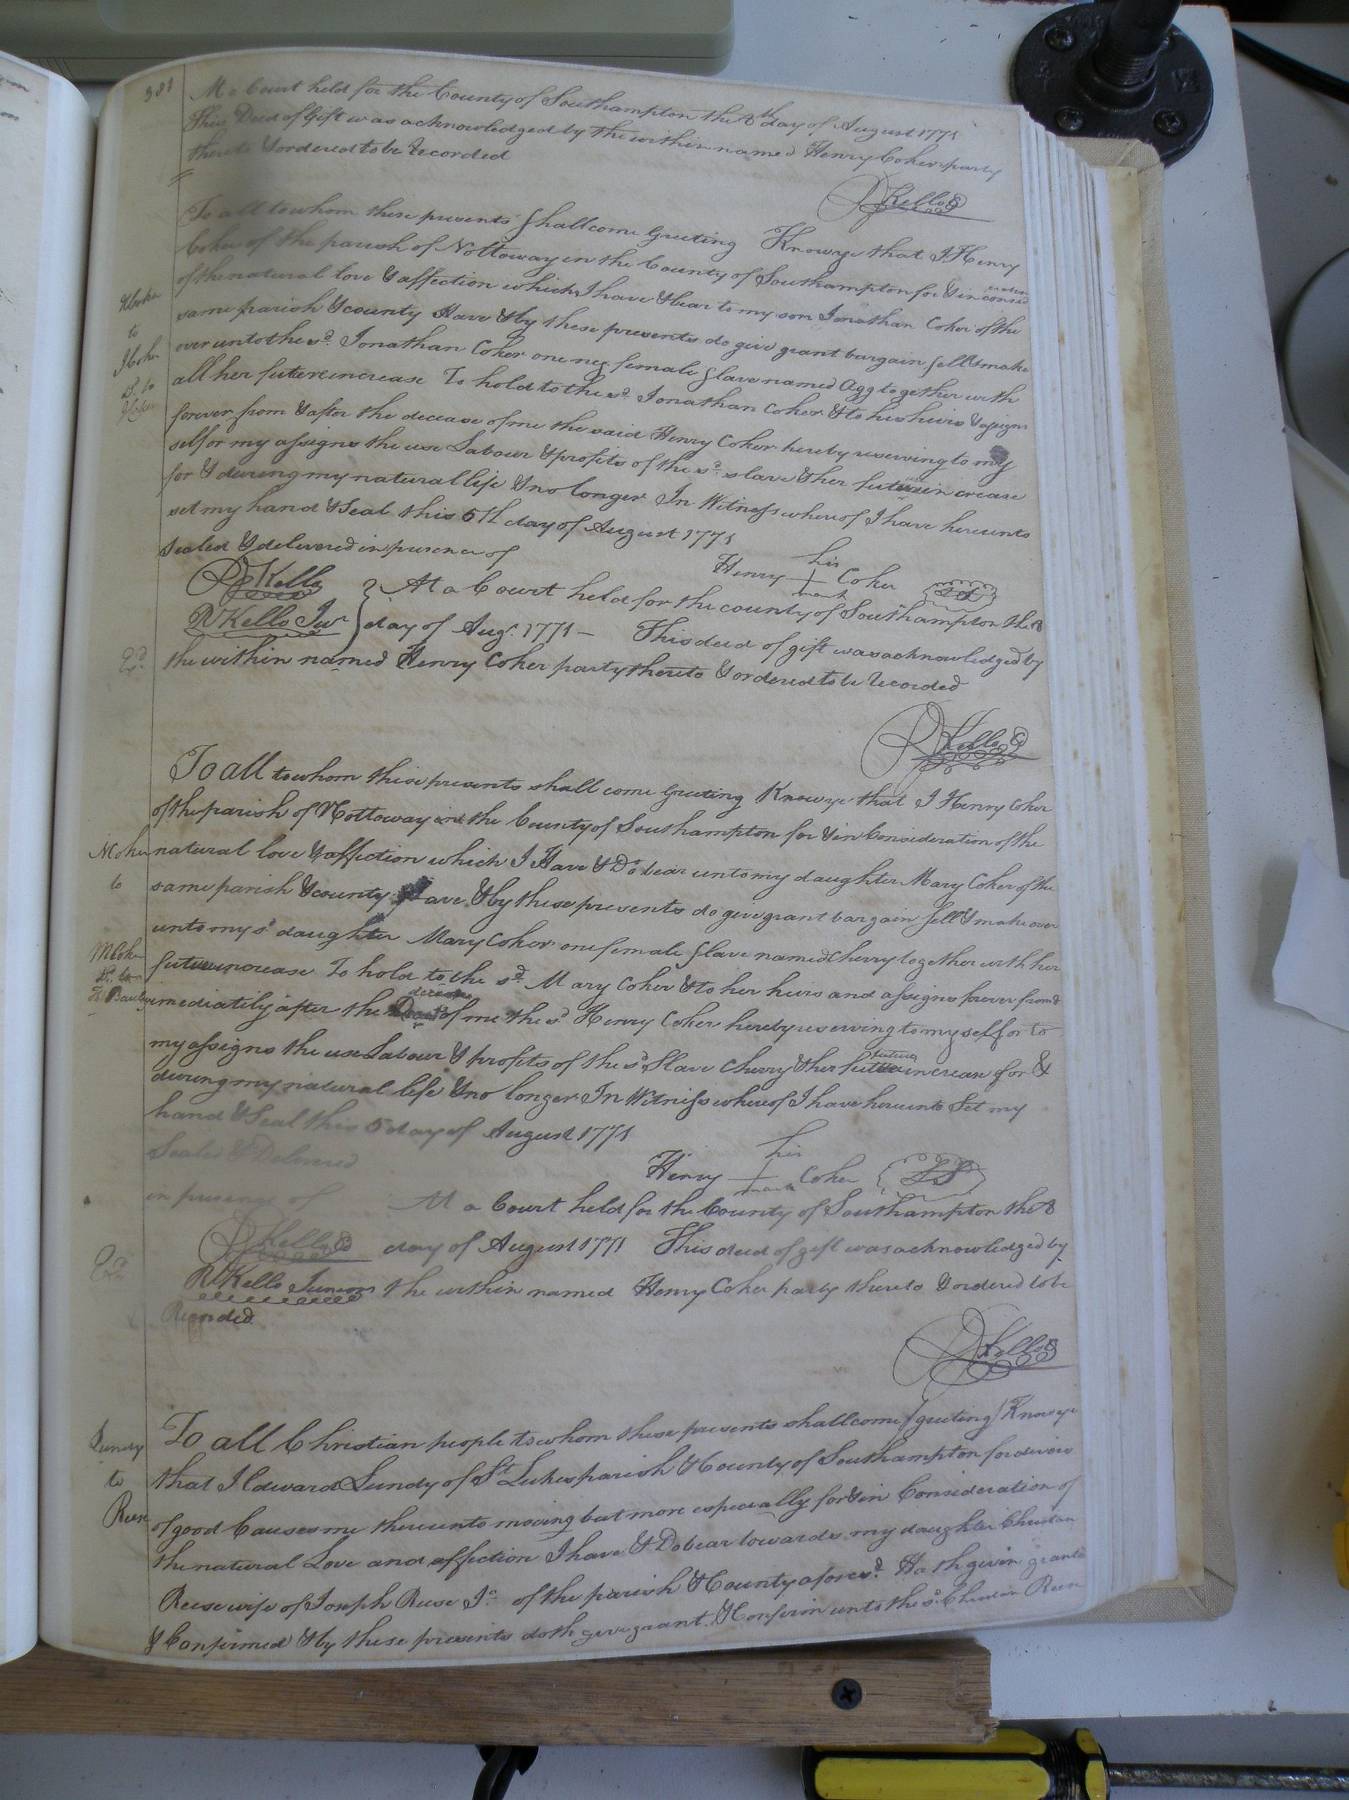 381
At a Court held for the County of Southampton the 8th day of August 1771
This Deed of Gift was acknowledged by the within named Henry Coker party
thereto & ordered to be Recorded
RKello
To all to whom these presents shall come Greeting Know ye that I Henry
Coker of the parish of Nottoway in the County of Southampton for & in
of the natural love & affection which I have & bear to my son Jonathan Coker of the
same parish & county Have & by these presents do give grant bargain sell & make
over unto the sd. Jonathan Coker one neg female slave named Agg together with
all her future increase To hold to the sd. Jonathan Coker & to his heirs & assigns
forever from & after the decease of me the said Henry Coker hereby reserving to my
self or my assigns the use Labour & profits of the sd. slave & her future increase
for & during my natural life & no longer In Witness whereof I have hereunto
set my hand & Seal this 5th day of August 1771
Sealed & delivered in presence of
Henry his + mark Coker LS
RKello
RKello Junr
At a Court held for the county of Southampton the 8
day of Augt. 1771 – This deed of gift was acknowledged by
the within named Henry Coker party thereto & ordered to be Recorded
RKello
HCoker
to
JCoker
Exd.
To all to whom these presents shall come Greeting Know ye that I Henry Coker
of the parish of Nottoway and the County of Southampton for & in Consideration of the
natural love & affection which I Have & Do bear unto my daughter Mary Coker of the
same parish & county Have & by these presents do give grant bargain sell & make over
unto my sd daughter Mary Coker one female slave named Cherry together with her
future increase To hold to the sd. Mary Coker & to her heirs and assigns forever from &
imediatily after the decease of me the sd Henry Coker hereby reserving to my self or to
my assigns the use Labour & profits of the sd Slave Cherry & her future increase for &
during my natural life & no longer In Witness whereof I have hereunto Set my
hand & Seal this 5 day of August 1771
Sealed & Delivered
in presence of
Henry his + mark Coker LS
RKello
RKello Junior
At a Court held for the County of Southampton the 8
day of August 1771 This deed of gift was acknowledged by
the within named Henry Coker party thereto & ordered to be
Recorded
RKello
to
MCoker
Exd
To all Christian people to whom these presents shall come (greeting) Know ye
that I Edward Lundy of St. Lukes parish & County of Southampton for divers
of good Causes me thereunto moving but more especially for & in Consideration of
the natural Love and affection I have & Do bear towards my daughter Christian
Reese wife of Joseph Reese Jr of the parish & County aforesd. Hath given granted
& Confirmed & by these presents doth give grant & Confirm unto the sd. Reese
Lundy
to
Reese